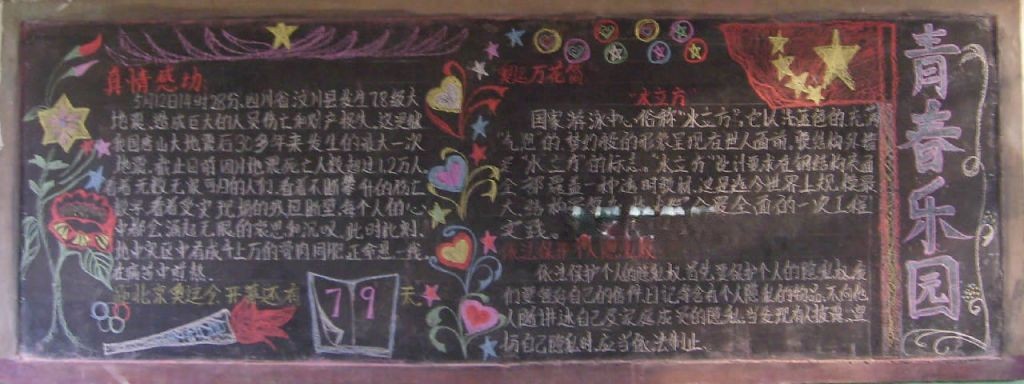 真情感动
5月12日14时28分,四川省汶川县发生7.8级大
地震,造成巨大的人员伤亡和财产损失,这是继
我国唐山大地震后30多年来发生的最大一次
地震,截止日前因此地震死亡人数超过1.2万人
看着无数无家可归的人们,看着不断攀升的伤亡
数字,看着受灾现场的残垣断壁,每个人的心
中都会涌起无限的哀思和沉默,此时此刻,
地中灾区中有成千上万的骨肉同胞,正牵悬一线
在痛苦中煎熬。
离北京奥运会开幕还有 79 天
奥运万花筒
"水立方"
国家游泳中心,俗称"水立方",它以湛蓝色的充满
气思的,梦幻般的形象呈现在世人面前,
"水立方"的标志。"水立方"设计要求在钢结构表面
全部覆盖一种透明膜材,这是迄今世界上规模最
大,最全面的一次工程
实践。
依法保护个人隐私权
依法保护个人的隐私权,首先要保护个人的隐私权,我
们要强好自己的信件,日记等含有个人隐私的物品,不向他
人随讲述自己及家庭成员的隐私,当发现有人披露,
与自己隐私时,应当依法制止。
青春乐园